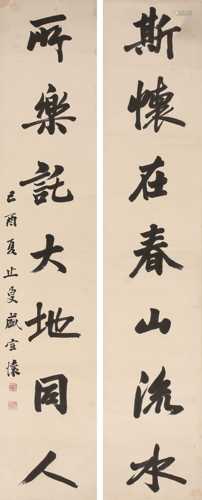 斯懷在春山流水
所樂託大地同人
己酉夏止叟盛宣懷